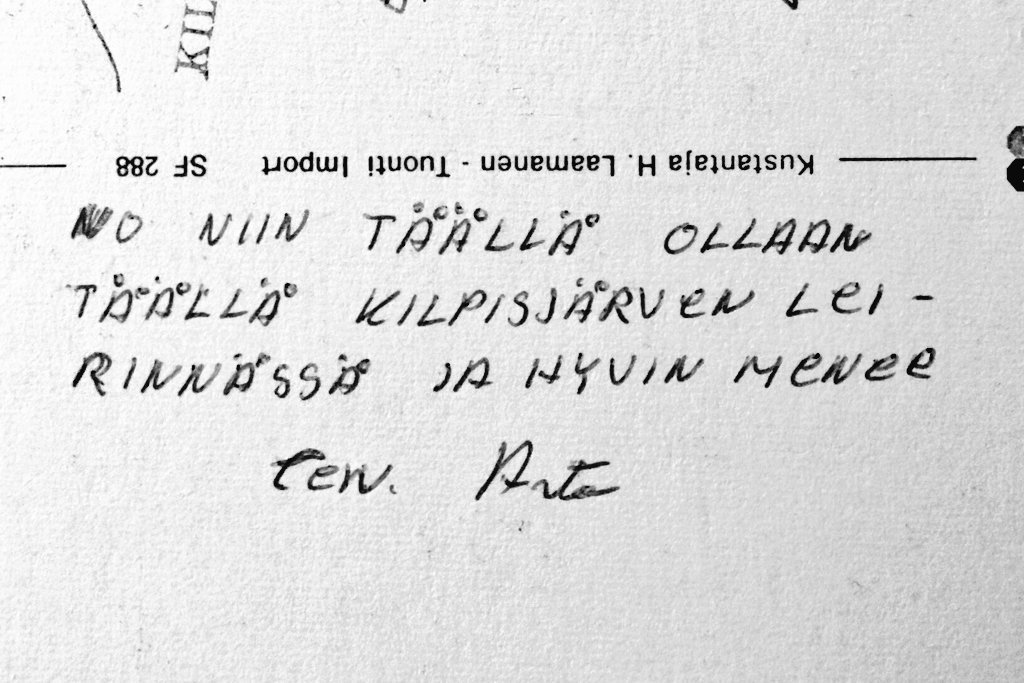 KIL
Kustantaja H. Laamanen - Tuonti Import SF 288
NO NIIN TÄÄLLÄ OLLAAN
TÄÄLLÄ KILPISJÄRVEN LEI-
RINNÄSSÄ JA HYVIN MENEE
Terv. Arto